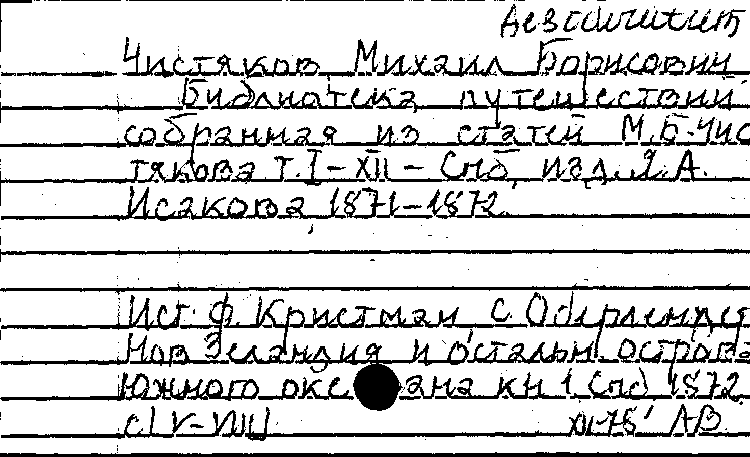 Чистяков, Михаил Борисович
Библиотека путешествий
собранная из статей М.Б.Чис
тякова т.I-XII - Спб, изд. Я.А.
Исакова, 1871-1872.
Ист: Ф. Кристман, С. Оберлендер
Нов Зеландия и остальн. острова
Южного океана кн 1. Спб, 1872.
с. IV-VIII XI-75' АВ.